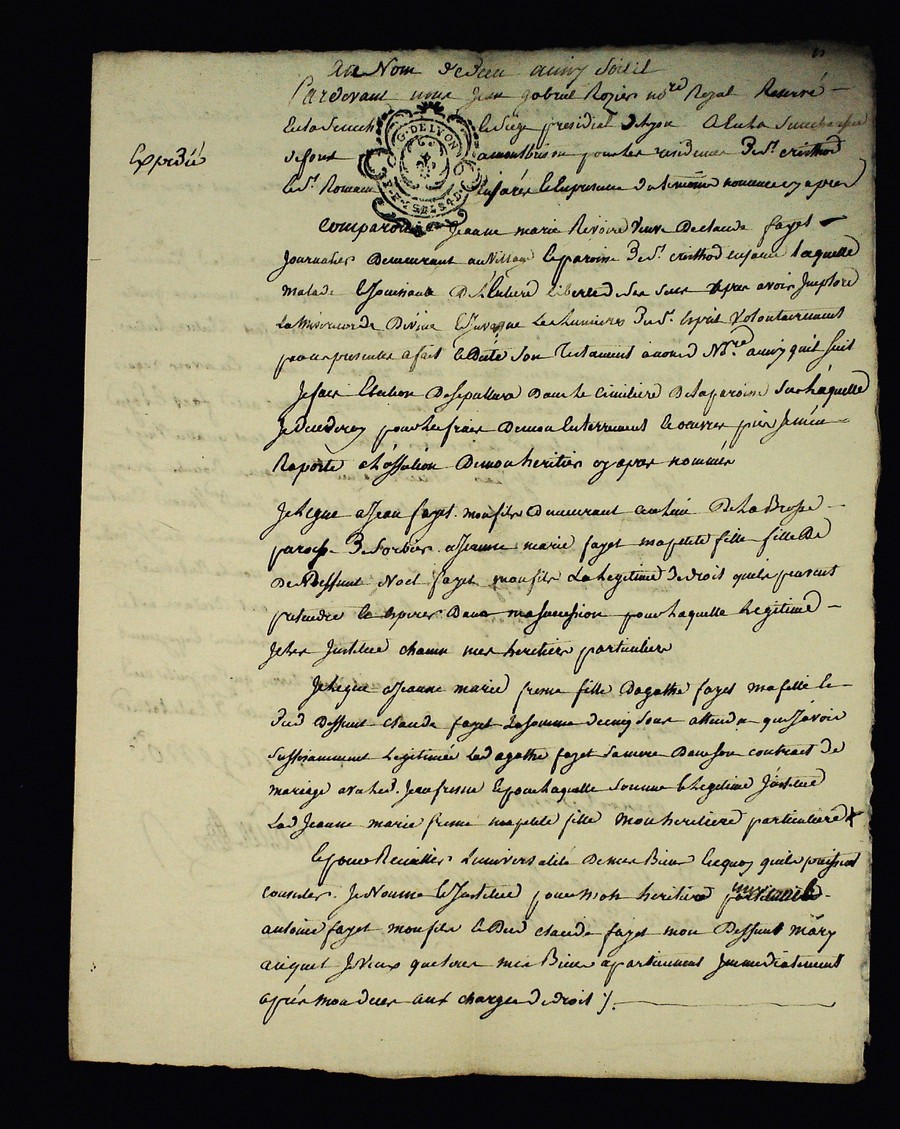 Au Nom de Dieu ainsy soitil
Pardevant nous Jean gabriel Rozier no.re Royal Reservé
En la Senech le Siege presidial de Lyon
Expedié
de forest a montbrison pour la residence de St. cristhod
G. DE LYON
le Sr. Romain en Jarés En presence des temoins nommes cy apres
Comparoit Jeanne marie Revoire veuve de claude fayet
Journalier demeurant au Village paroisse de St. cristhod en Jarets Laquelle
malade & Jouissant de L'Entiere Liberté de ses sens apres avoir Imploré
La Misericorde Divine & Invoqué Les Lumieres du St. Esprit Volontairement
par ces presentes a fait & dicté Son Testament a nous d. No.re ainsy quil suit
Je fais Election de Sepulture dans le cimitiere de la paroisse Sur Laquelle
Je decederay pour les frais de mon Enterrement & oeuvres pies Je m'en
Raporte a la discretion de mon heritier cy apres nommé
Je Legue a Jean fayet mon fils demeurant au lieu de La Brosse
paroiss. de Sorbier a Jeanne marie fayet ma petite fille fille de
deffunt Noel fayet mon fils La Legitime de droit quils peuvent
pretendre & esperer Dans ma succession pour Laquelle Legitime
Je Les Institue chacun mes heritiers particuliers
Je Legue a Jeanne marie fresne fille d'agathe fayet ma fille &
dud deffunt claude fayet La somme de cinq sous attendu que J'avois
Suffisamment Legitimée Lad agathe fayet Sa mere Dans son contract de
mariage avec led. Jean fresne & pour Laquelle Somme & Legitime J'institue
Lad Jeanne marie fresne ma petite fille mon heritiere particuliere
Et pour Recueillir L'universalité de mes Biens En quoy quils puissent
consister Je Nomme & Institue pour mon heritier universel
antoine fayet mon fils & dud claude fayet mon deffunt mary
auquel Je veux que tous mes Biens apartiennent Immediatement
apres mon deces aux charges de droit /.